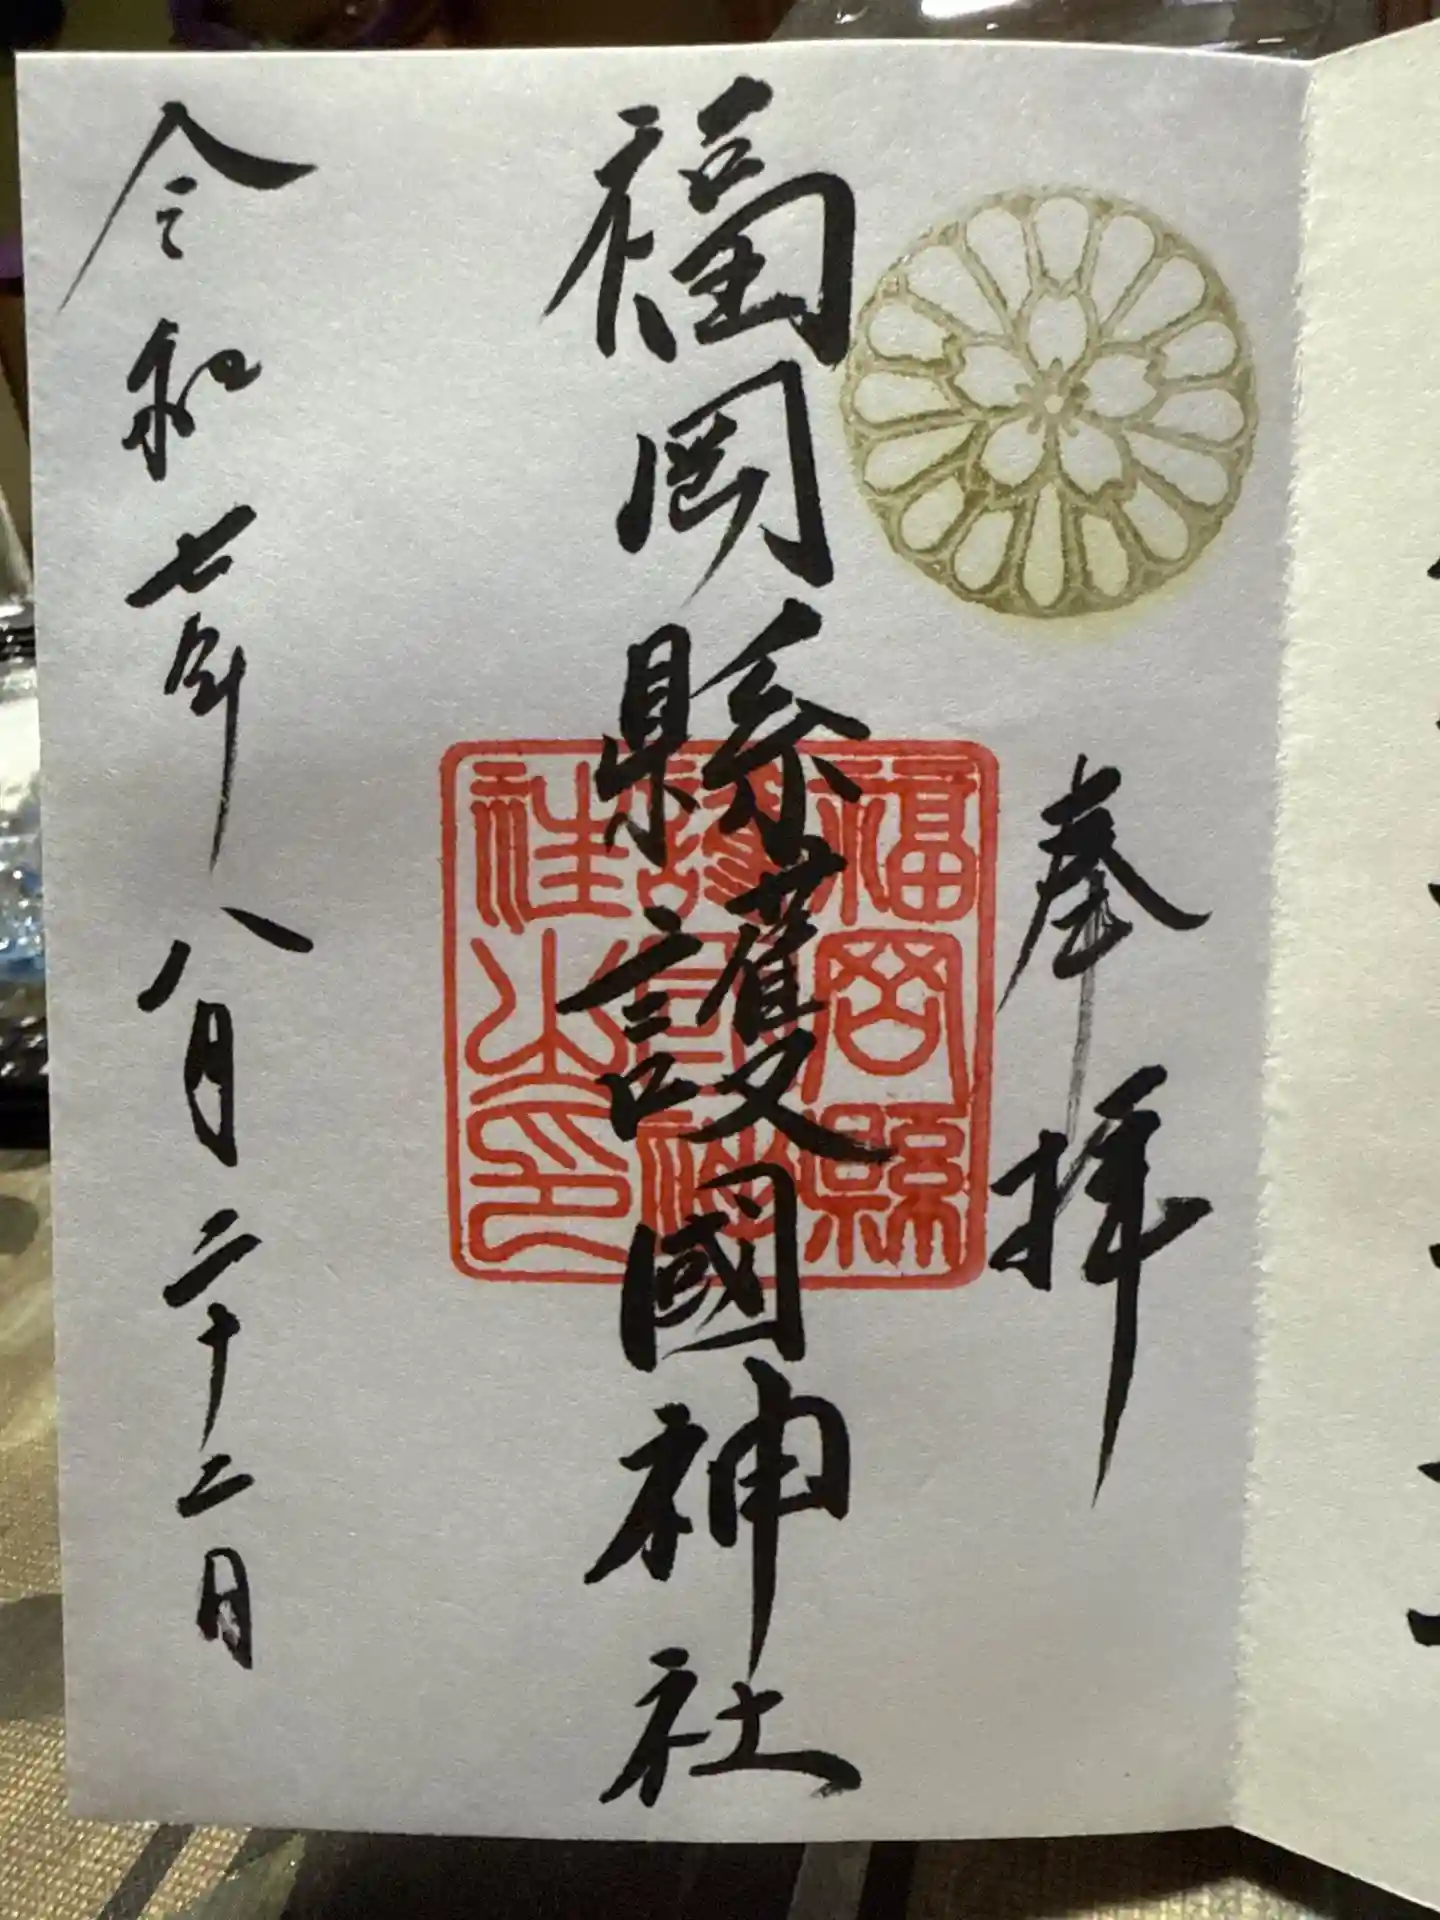 奉拝
福岡縣護國神社
福岡縣
護国神
社之印
令和七年八月二十二日